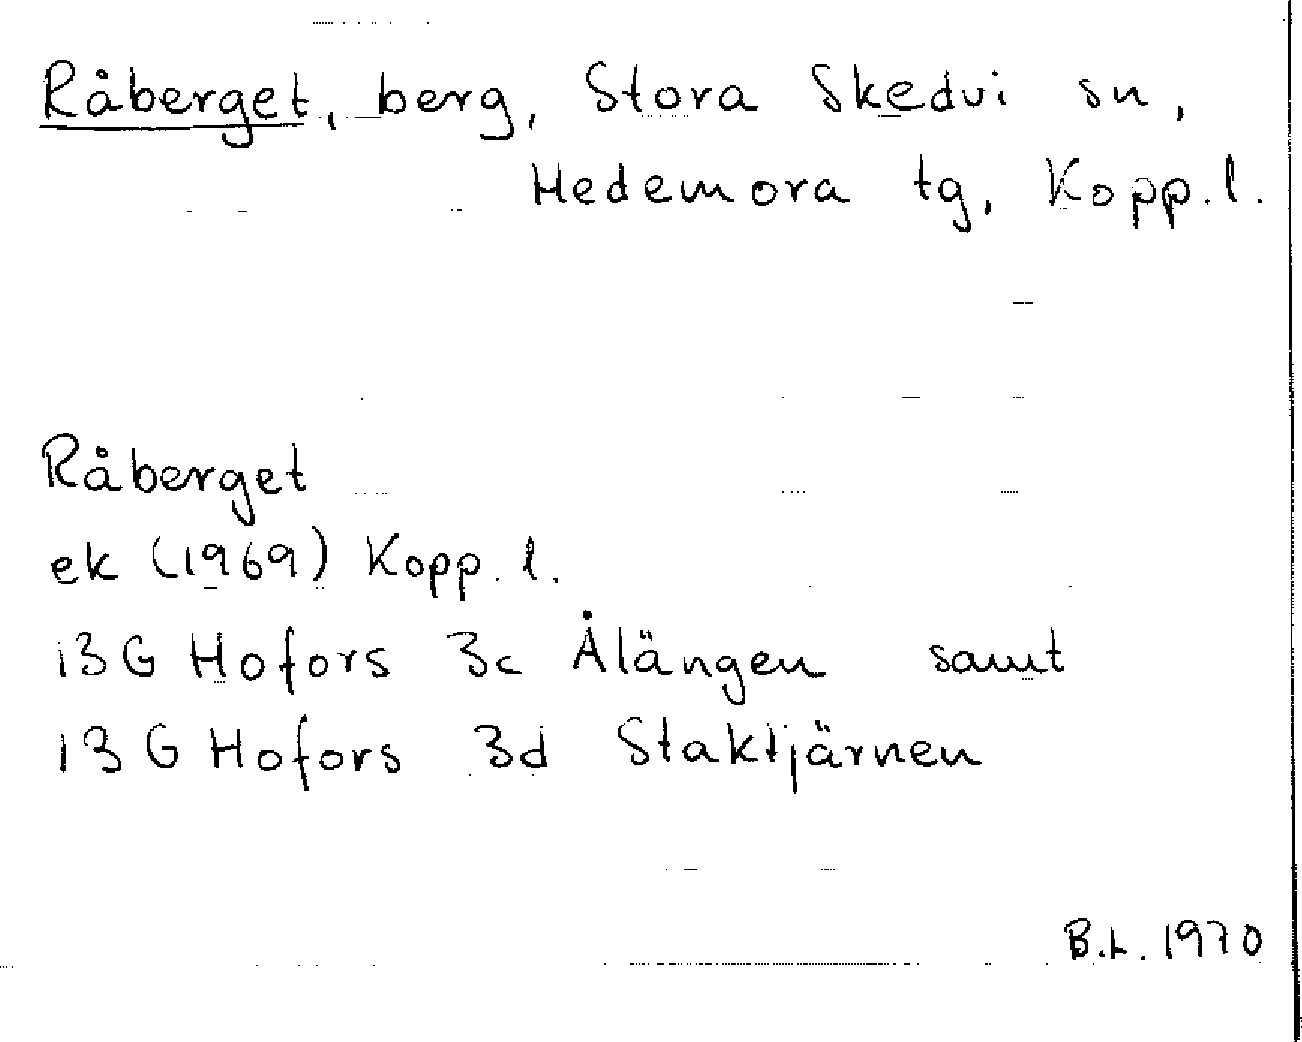 Råberget, berg, Stora Skedvi sn,
Hedemora tg, Kopp. l.
Råberget
ek (1969) Kopp. l.
13 G Hofors 3c Ålängen samt
13 G Hofors 3d Staktjärnen
B.L. 1970